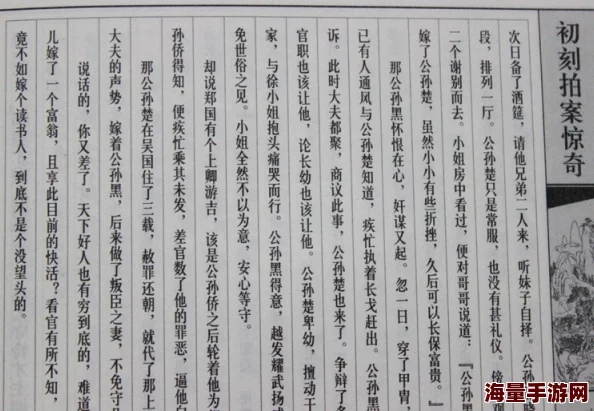 初刻拍案惊奇
次日备了酒筵，请他兄弟二人来，听妹子自择。公孙
段，排列一厅。公孙楚只是常服，也没有甚礼仪。傍
二个谢别而去。小姐房中看过，便对哥哥说道：『公孙黑
嫁了公孙楚，虽然小小有些折挫，久后可以长保富贵。』
那公孙黑怀恨在心，奸谋又起。忽一日，穿了甲胄，
已有人通风与公孙楚知道，疾忙执着长戈赶出。公孙黑
诉。此时大夫都聚，商议此事，公孙楚也来了。争辩了多
官职也该让他，论长幼也该让他。公孙楚卑幼，擅动干
家，与徐小姐抱头痛哭而行。公孙黑得意，越发耀武扬威
免世俗之见。小姐全然不以为意，安心等守。
却说郑国有个上卿游吉，该是公孙侨之后轮着他为
孙侨得知，便疾忙乘其未发，差官数了他的罪恶，逼他自
那公孙楚在吴国住了三载，赦罪还朝，就代了那上
大夫的声势，嫁着公孙黑，后来做了叛臣之妻，不免守
说话的，你又差了。天下好人也有穷到底的，难道
儿嫁了一个富翁，且享此目前的快活？看官有所不知，
竟不如嫁个读书人，到底不是个没望头的。
海量手游网